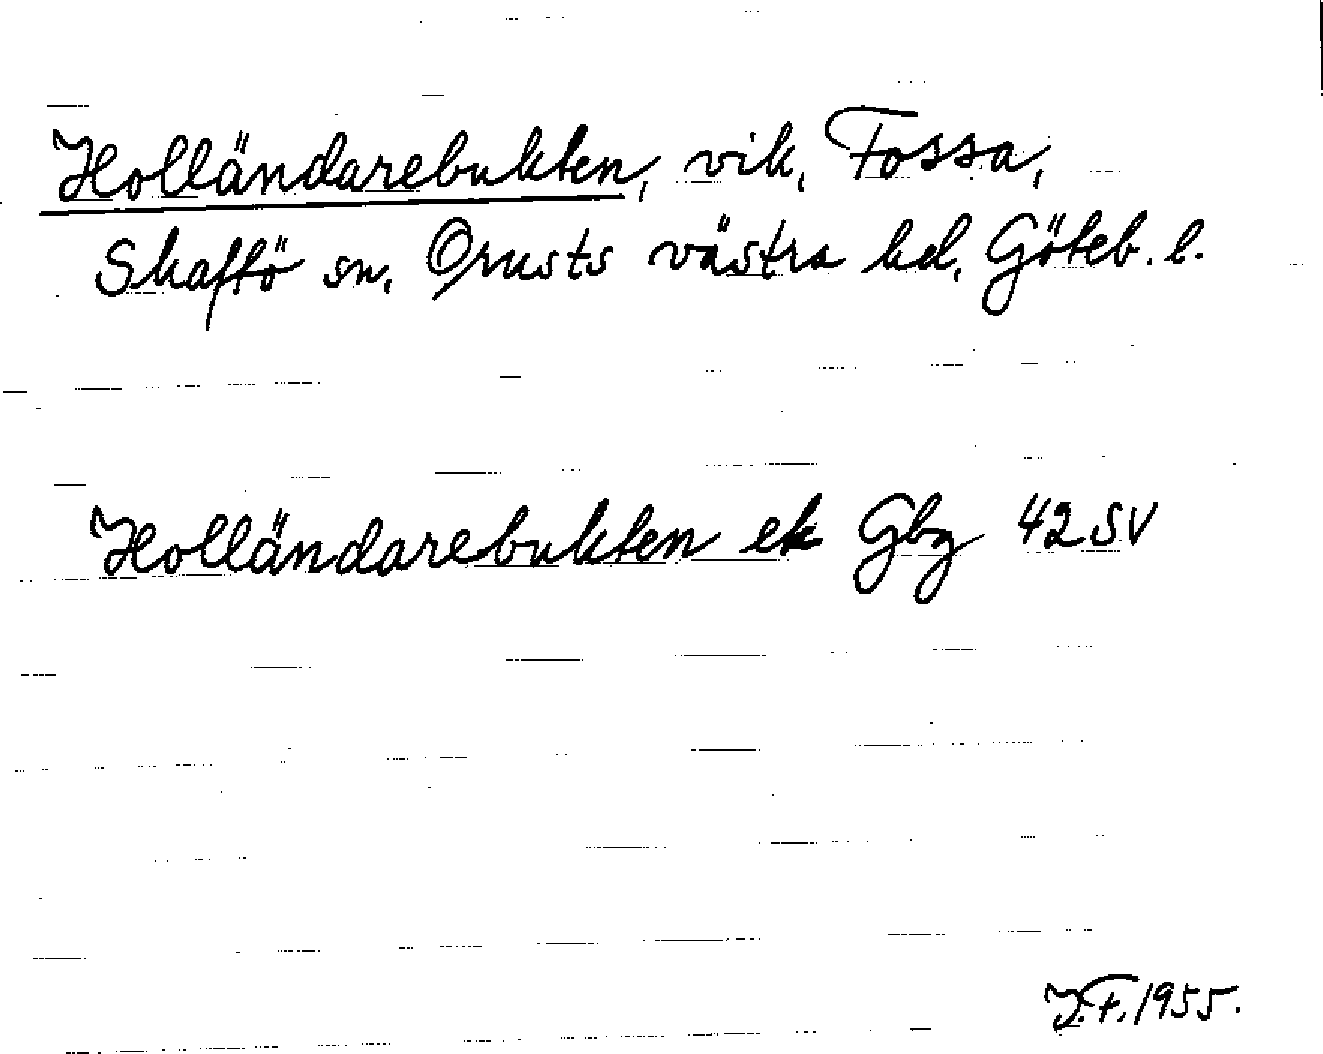 Holländarebukten, vik, Fossa,
Skaftö sn, Orusts västra hd, Göteb. l.
Holländarebukten ek Gbg 42 SV
J.F. 1955.